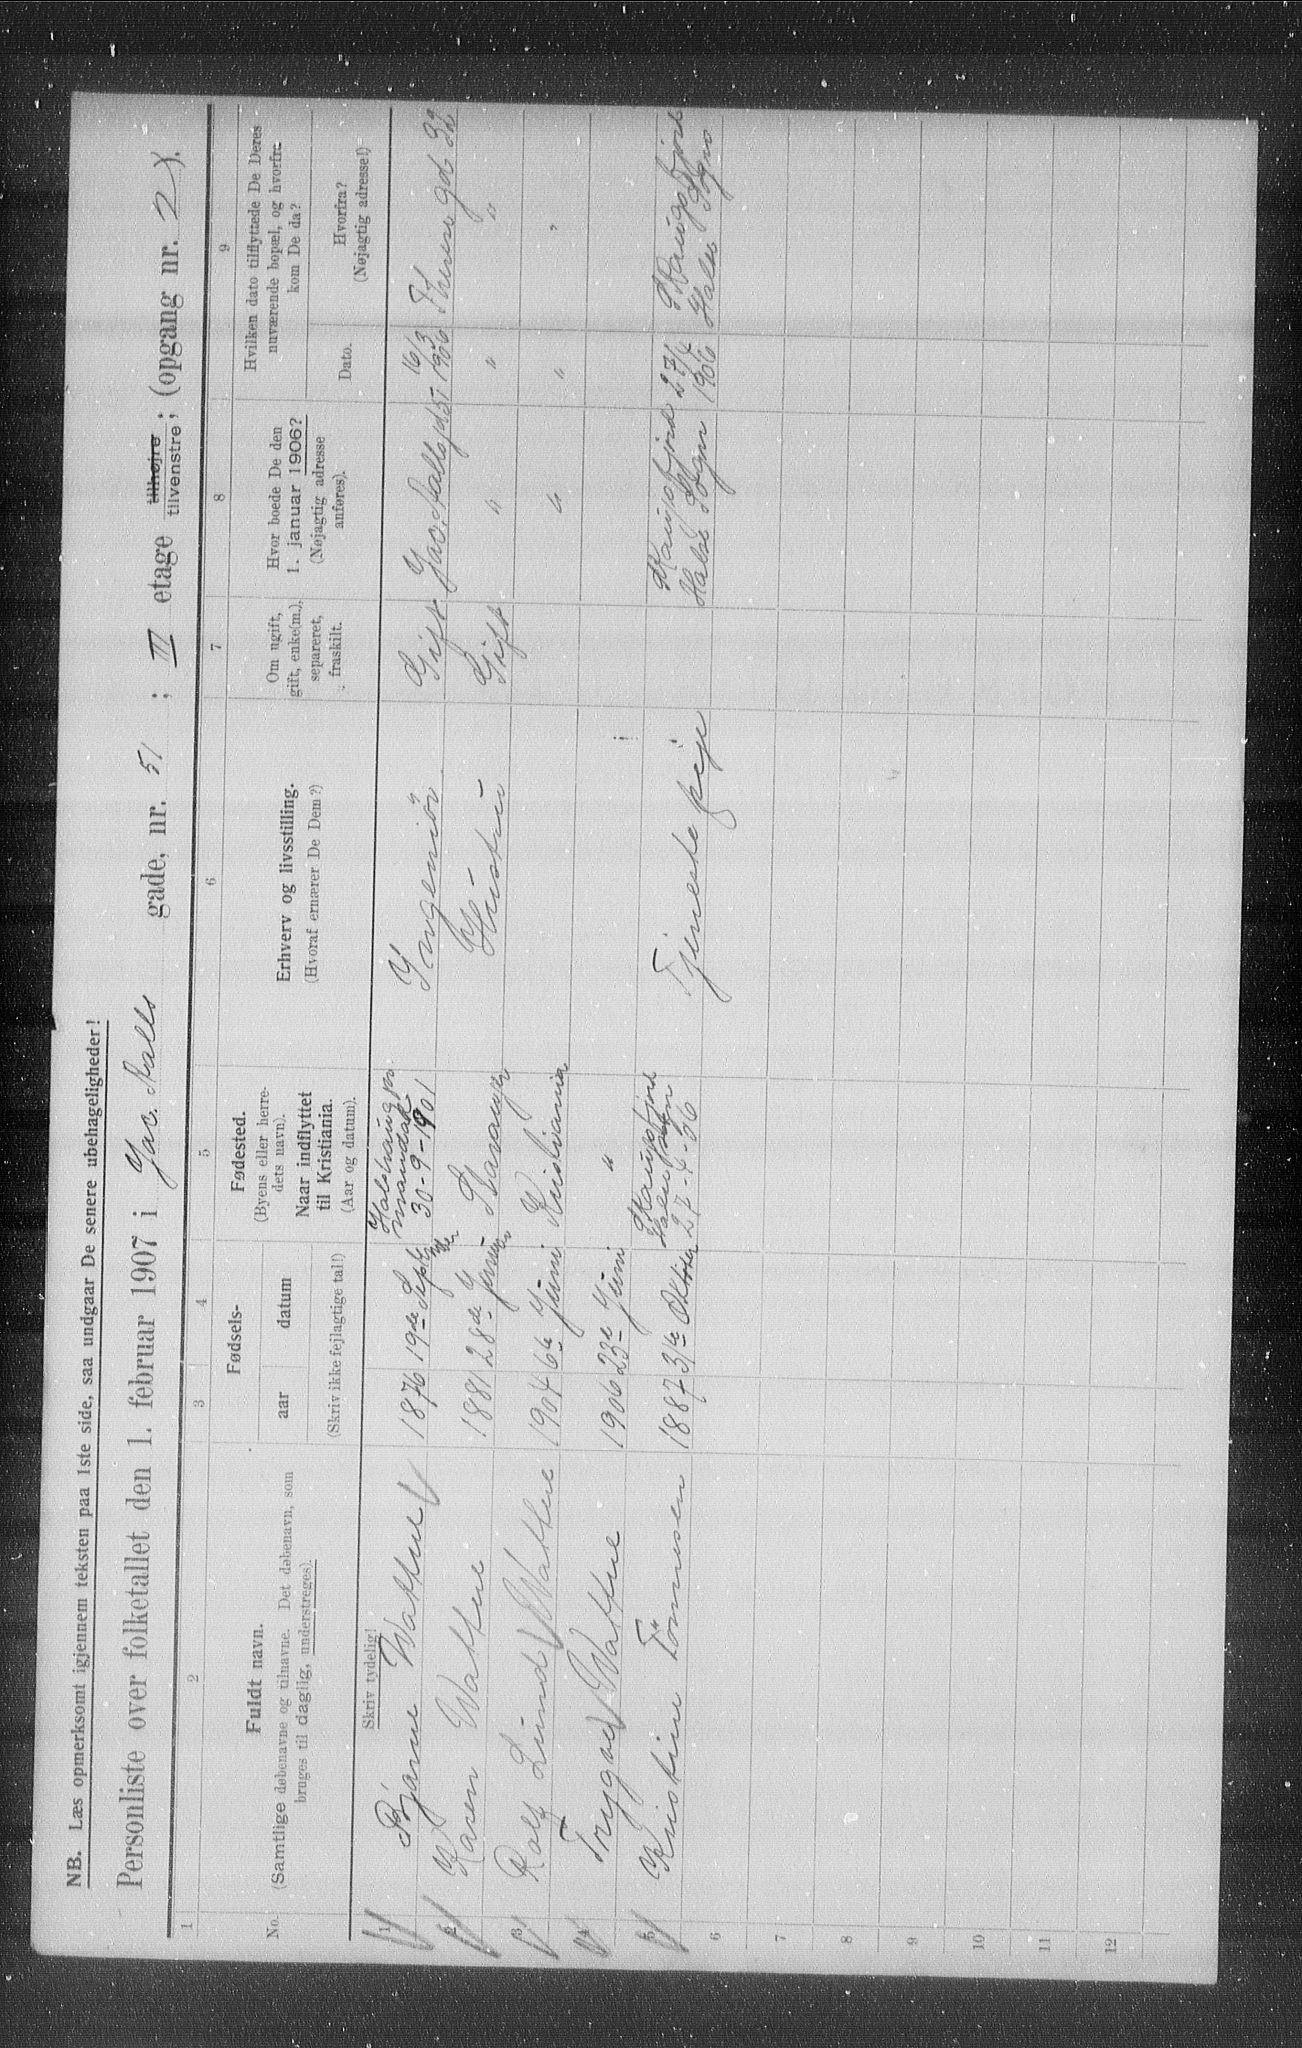 NB. Læs opmerksomt igjennem teksten paa 1ste side, saa undgaar De senere ubehageligheder!
Personliste over folketallet den 1. februar 1907 i Jac. Aalls gade, nr. 51 ; III etage tilhøjre tilvenstre ; (opgang nr. 2).
1 2 3 4 5 6 7 8 9
No.
Fuldt navn.
(Samtlige døbenavne og tilnavne. Det døbenavn, som
bruges til daglig, understreges).
Fødsels-
aar datum
(Skriv ikke fejlagtige tal!)
Fødested.
(Byens eller herre-
dets navn).
Naar indflyttet
til Kristiania.
(Aar og datum).
Erhverv og livsstilling.
(Hvoraf ernærer De Dem?)
Om ugift,
gift, enke(m.),
separeret,
fraskilt.
Hvor boede De den
1. januar 1906?
(Nøjagtig adresse
anføres).
Hvilken dato tilflyttede De Deres
nuværende bopæl, og hvorfra
kom De da?
Dato.
Hvorfra?
(Nøjagtig adresse!)
Skriv tydelig!
1 Bjarne Wattne 1876 19de Septbr 30-9-1901 Ingeniör Gift Jac. Aallsgd 51 16/3 1906 gd 32
2 Karen Wattne 1881 28de Stavanger Hustru Gift " " "
3 Rolf Lund Wattne 1904 6te Juni Kristiania " " "
4 Trygve Wattne 1906 23de Juni "
5 Kristine Tönnesen 1887 31te Oktober 27-4-06 Tjenestepige Halse Sogn 27/4 1906 Halse Sogn
6
7
8
9
10
11
12